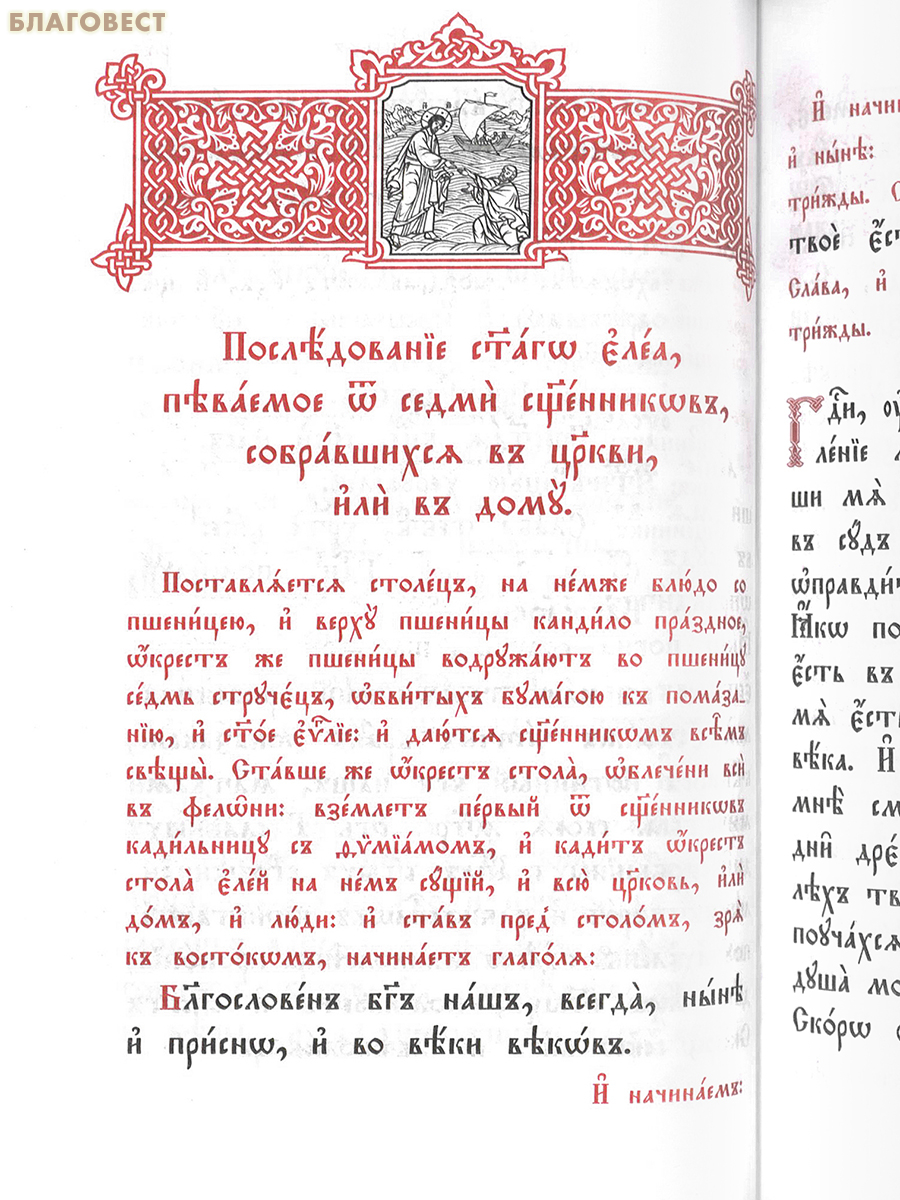 БЛАГОВЕСТ
Послѣ́дованїе ст҃а́гѡ є҆ле́а,
пѣва́емое ѿ седмѝ сщ҃е́нникѡвъ,
собра́вшихсѧ въ цр҃кви,
и҆лѝ въ домꙋ̀.
Поставлѧ́етсѧ столе́цъ, на не́мже блю́до со
пшени́цею, и҆ верхꙋ̀ пшени́цы канди́ло пра́здное,
ѡ҆́крестъ же пшени́цы водрꙋжа́ютъ во пшени́цꙋ
се́дмь стрꙋче́цъ, ѡ҆бви́тыхъ бꙋма́гою къ пома́за-
нїю, и҆ ст҃о́е є҆ѵⷢ҇лїе: и҆ даю́тсѧ сщ҃е́нникѡмъ всѣ̑мъ
свѣщы̀. Ста́вше же ѡ҆́крестъ стола̀, ѡ҆блече́ни всѝ
въ фелѡ́ни: взе́млетъ пе́рвый ѿ сщ҃е́нникѡвъ
кади́льницꙋ съ ѳѷмїа́момъ, и҆ кади́тъ ѡ҆́крестъ
стола̀ є҆ле́й на не́мъ сꙋ́щїй, и҆ всю̀ цр҃ковь, и҆лѝ
до́мъ, и҆ лю́ди: и҆ ста́въ пред̾ столо́мъ, зрѧ̀
къ восто́кѡмъ, начина́етъ глаго́лѧ:
Бл҃гослове́нъ бг҃ъ на́шъ, всегда̀, ны́нѣ
и҆ при́снѡ, и҆ во вѣ́ки вѣкѡ́въ.
И҆ начина́емъ:
И҆
и҆ ны́нѣ:
три́жды.
твоѐ
Сла́ва, и҆
три́жды.
Гд҇и,
ле́нїе
ши мѧ̀
въ сꙋ́дъ
Ꙗ҆́кѡ
є҆́сть въ
мѧ̀
вѣ́ка. И҆
мнѣ̀
дни̑
лѣхъ
поꙋча́хсѧ
дꙋша̀
Ско́рѡ